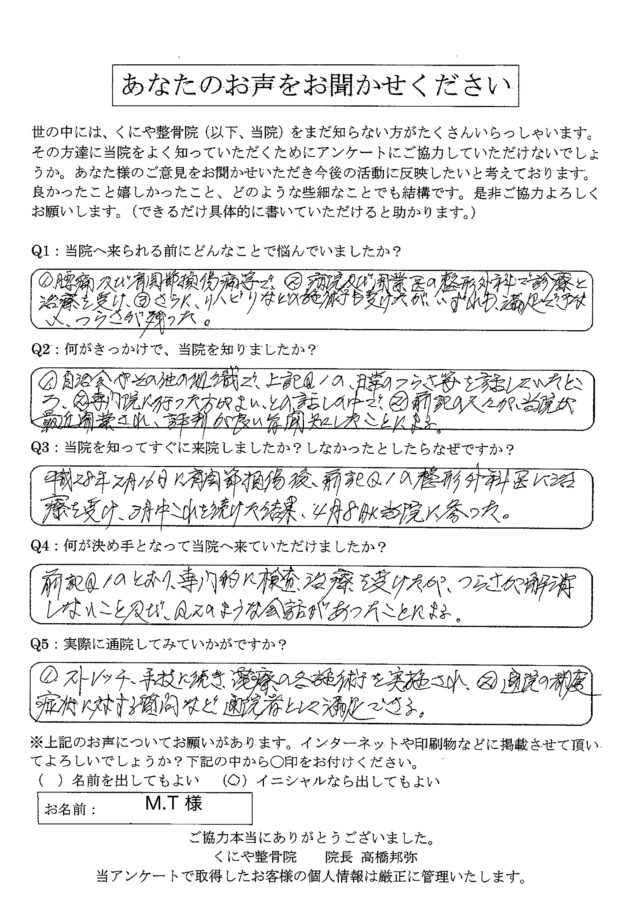 あなたのお声をお聞かせください
世の中には、くにや整骨院（以下、当院）をまだ知らない方がたくさんいらっしゃいます。
その方達に当院をよく知っていただくためにアンケートにご協力していただけないでしょ
うか。あなた様のご意見をお聞かせいただき今後の活動に反映したいと考えております。
良かったこと嬉しかったこと、どのような些細なことでも結構です。是非ご協力よろしく
お願いします。（できるだけ具体的に書いていただけると助かります。）
Q1：当院へ来られる前にどんなことで悩んでいましたか？
①腰痛及び肩関節損傷痛等で、②病院及び開業医の整形外科で診療と
治療を受け、③さらに、りんどりなどの施術も受けたが、いずれも満足できな
く、つらさが残った。
Q2：何がきっかけで、当院を知りましたか？
①自治会やその他の組織で、上記Q1の、日常のつらさ等を話していたとこ
ろ、②専門院に行った方がよい、との話しの中で、②前記の人々が、当院が
最近開業され、評判が良い旨聞知したことによる。
Q3：当院を知ってすぐに来院しましたか？しなかったとしたらなぜですか？
平成28年2月16日に肩関節損傷後、前記Q1の整形外科医に治
療を受け、3月中これを続けた結果、4月8日に当院に参った。
Q4：何が決め手となって当院へ来ていただけましたか？
前記Q1のとおり、専門的に検査、治療を受けたが、つらさが解消
しないこと及び、Q2のような会話があったことによる。
Q5：実際に通院してみていかがですか？
①ストレッチ、手技に続き、電療の各施術を実施され、②通院の都度
症状に対する質問など通院者として満足できる。
※上記のお声についてお願いがあります。インターネットや印刷物などに掲載させて頂い
てよろしいでしょうか？下記の中から〇印をお付けください。
（ ）名前を出してもよい （〇）イニシャルなら出してもよい
お名前： M.T 様
ご協力本当にありがとうございました。
くにや整骨院 院長 高橋邦弥
当アンケートで取得したお客様の個人情報は厳正に管理いたします。